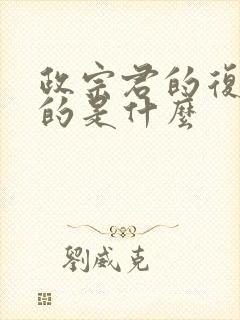 政宗君的復
的是什麼
劉威克